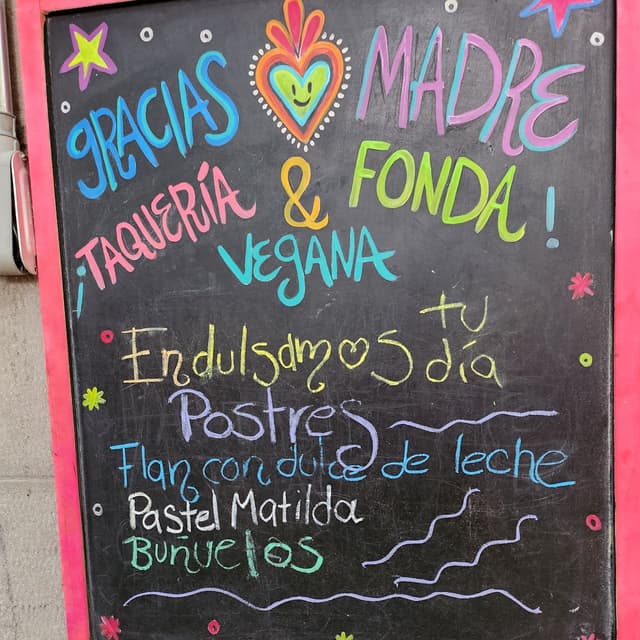 GRACIAS MADRE
¡TAQUERÍA & FONDA!
VEGANA
Endulsamos tu día
Postres
Flan con dulce de leche
Pastel Matilda
Buñuelos